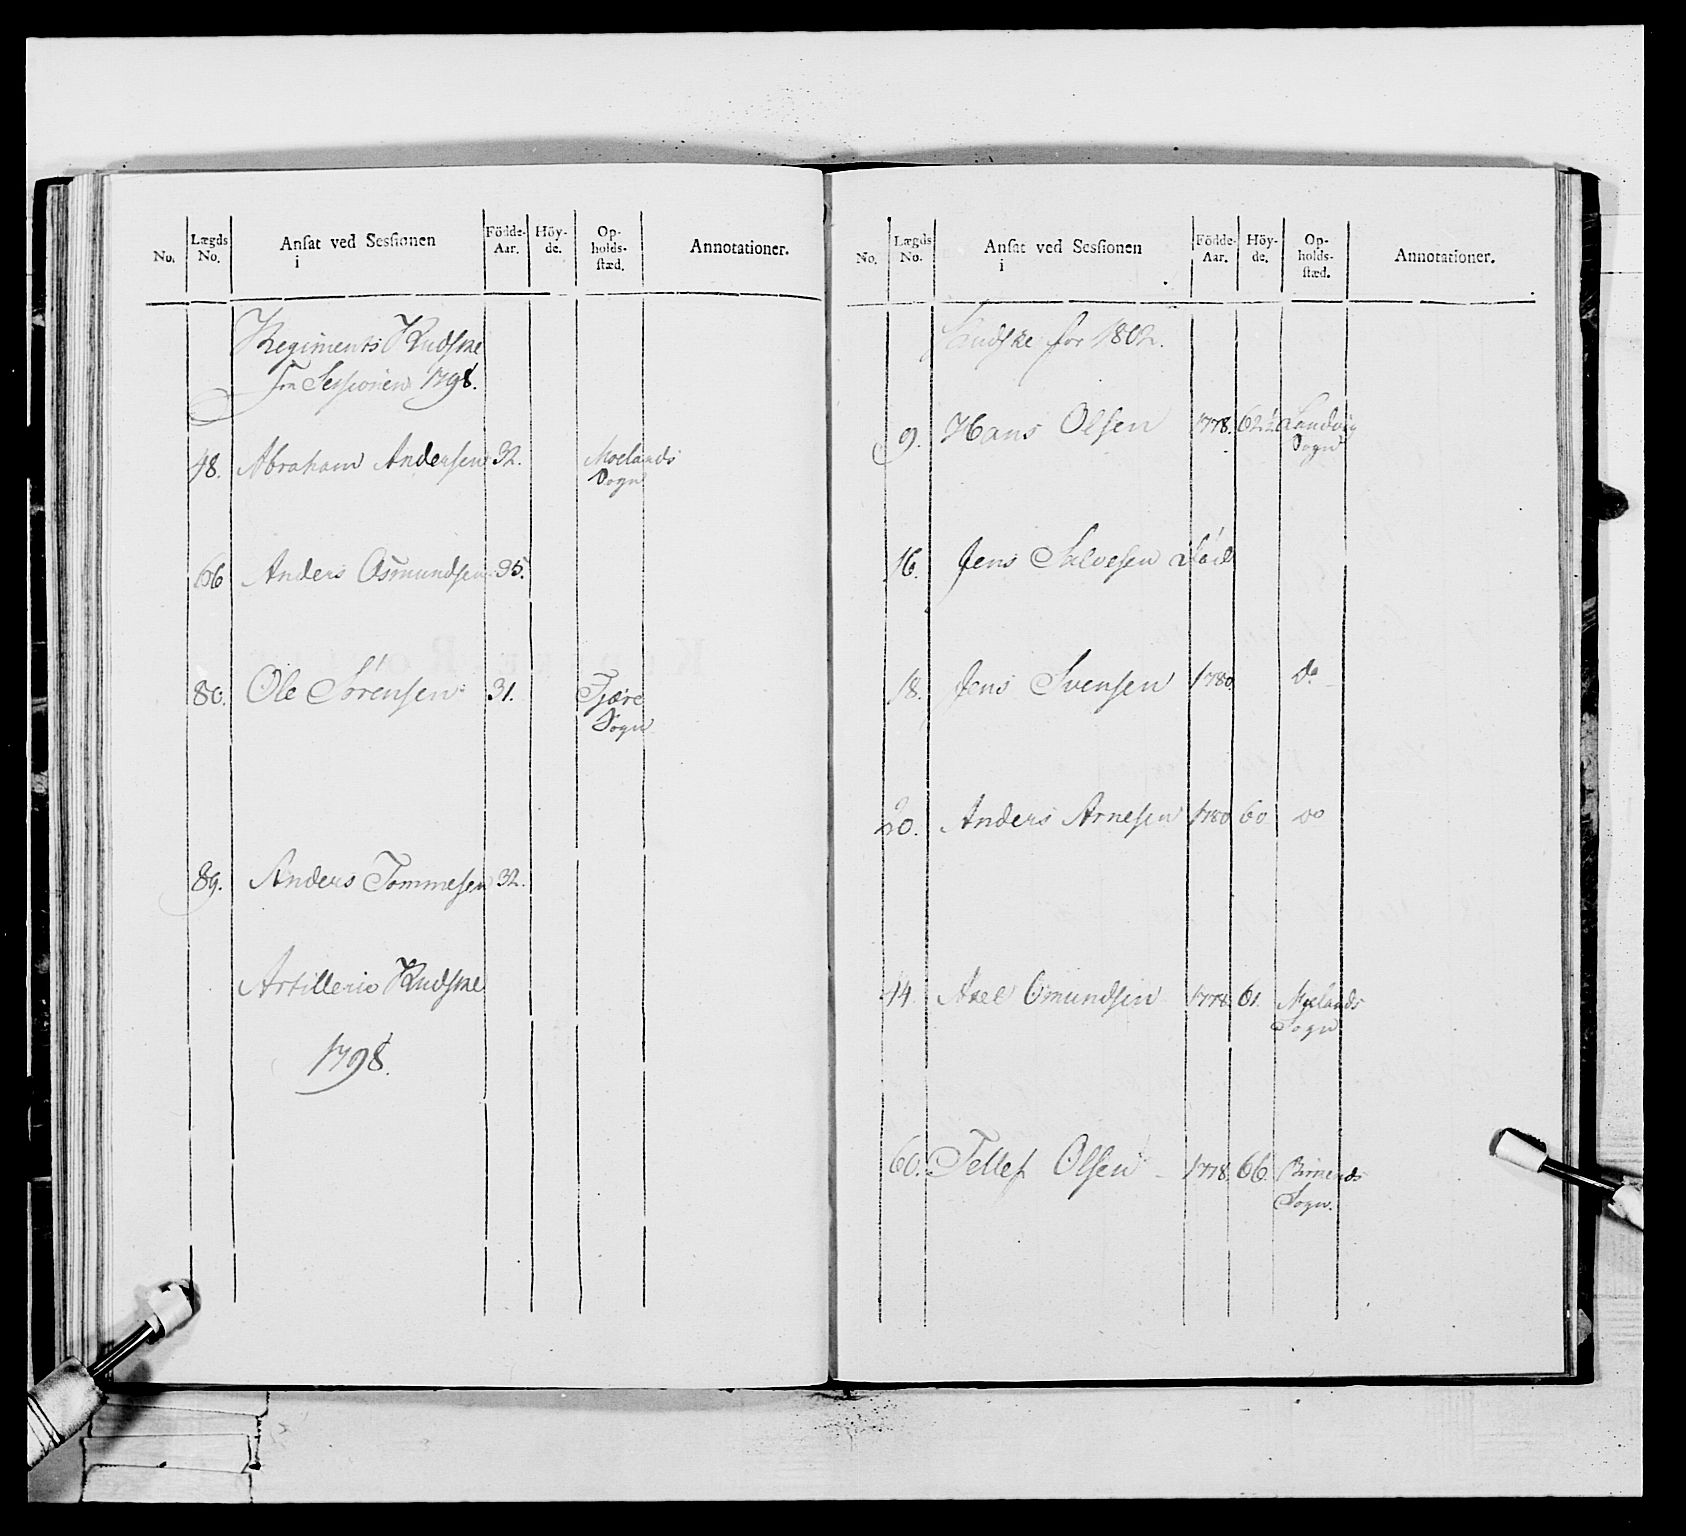 No. Lægds No. Ansat ved Sessionen i Födde-Aar. Höy-de. Op-holds-stæd. Annotationer.
Regiments Kudske
fra Sessionen 1798.
48. Abraham Andersen 32. Moelands
Sogn
66 Anders Osmundsen 35.
80. Ole Sörensen 31. Fjære
Sogn
89. Anders Tommesen 32.
Artillerie Kudske
1798.
No. Lægds No. Ansat ved Sessionen i Födde-Aar. Höy-de. Op-holds-stæd. Annotationer.
Kudske for 1802.
9. Hans Olsen 1778. 62½ Landvig
Sogn
16. Jens Salvesen
18. Jens Svensen 1780 do
20. Anders Arnesen 1780 60 do
44. Axel Omundsen 1778 61. Moelands
Sogn
60. Tellef Olsen 1778. 66.
Sogn.